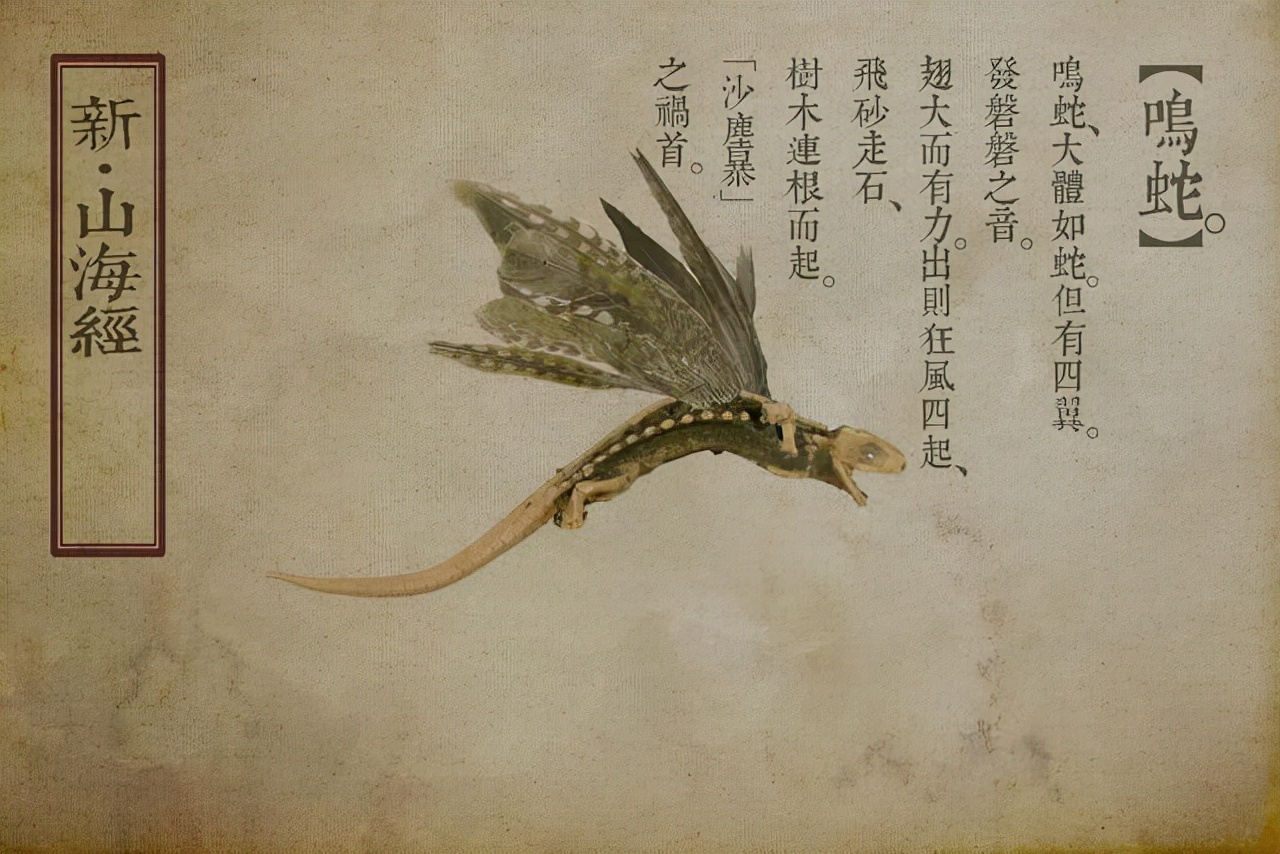 【鳴蛇。】
鳴蛇、大體如蛇。但有四翼。
發磐磐之音。
翅大而有力。出則狂風四起、
飛砂走石、
樹木連根而起。
「沙塵暴」
之禍首。
新·山海經